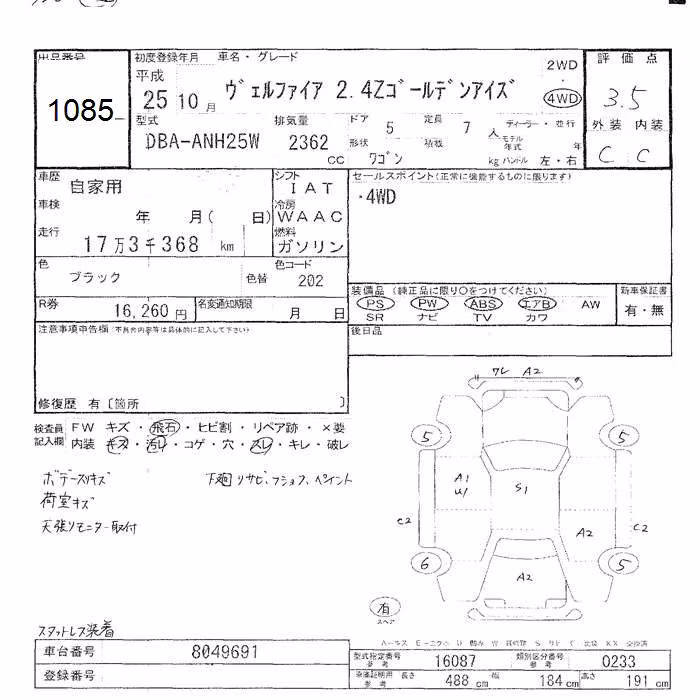 出品番号
1085
初度登録年月 車名・グレード
平成
25 10 月 ヴェルファイア 2.4Zゴールデンアイズ
2WD
・
4WD
評価点
3.5
外装 内装
C C
型式 排気量 ドア 定員 ディーラー・並行
DBA-ANH25W 2362 cc 5 7 人 モデル年式 年
形状 積載
ワゴン kg ハンドル 左・右
車歴 自家用
シフト
IAT
車検 年 月( 日)
冷房
WAAC
走行 17万3千368 km
燃料
ガソリン
色 ブラック 色替
色コード
202
R券 16,260円 名変通知期限 月 日
セールスポイント(正常に機能するものに限ります)
・4WD
装備品 (純正品に限り○をつけてください)
PS PW ABS エアB AW
SR ナビ TV カワ
新車保証書
有・無
後日品
注意事項申告欄(不具合内容等は具体的に記入して下さい)
修復歴 有〔箇所 〕
検査員記入欄 FW キズ・飛石・ヒビ割・リペア跡・×要
内装 キズ・汚レ・コゲ・穴・スレ・キレ・破レ
ボデースリキズ
荷室キズ
天張リモニター取付
下廻リサビ、フショク、ペイント
ワレ A2
5 5
A1
U1
S1
C2 A2 C2
6 5
A2
有
スペア
スタットレス装着
車台番号 8049691
登録番号
型式指定番号 参考 16087 類別区分番号 参考 0233
車庫証明用 参考 長さ 488 cm 幅 184 cm 高さ 191 cm